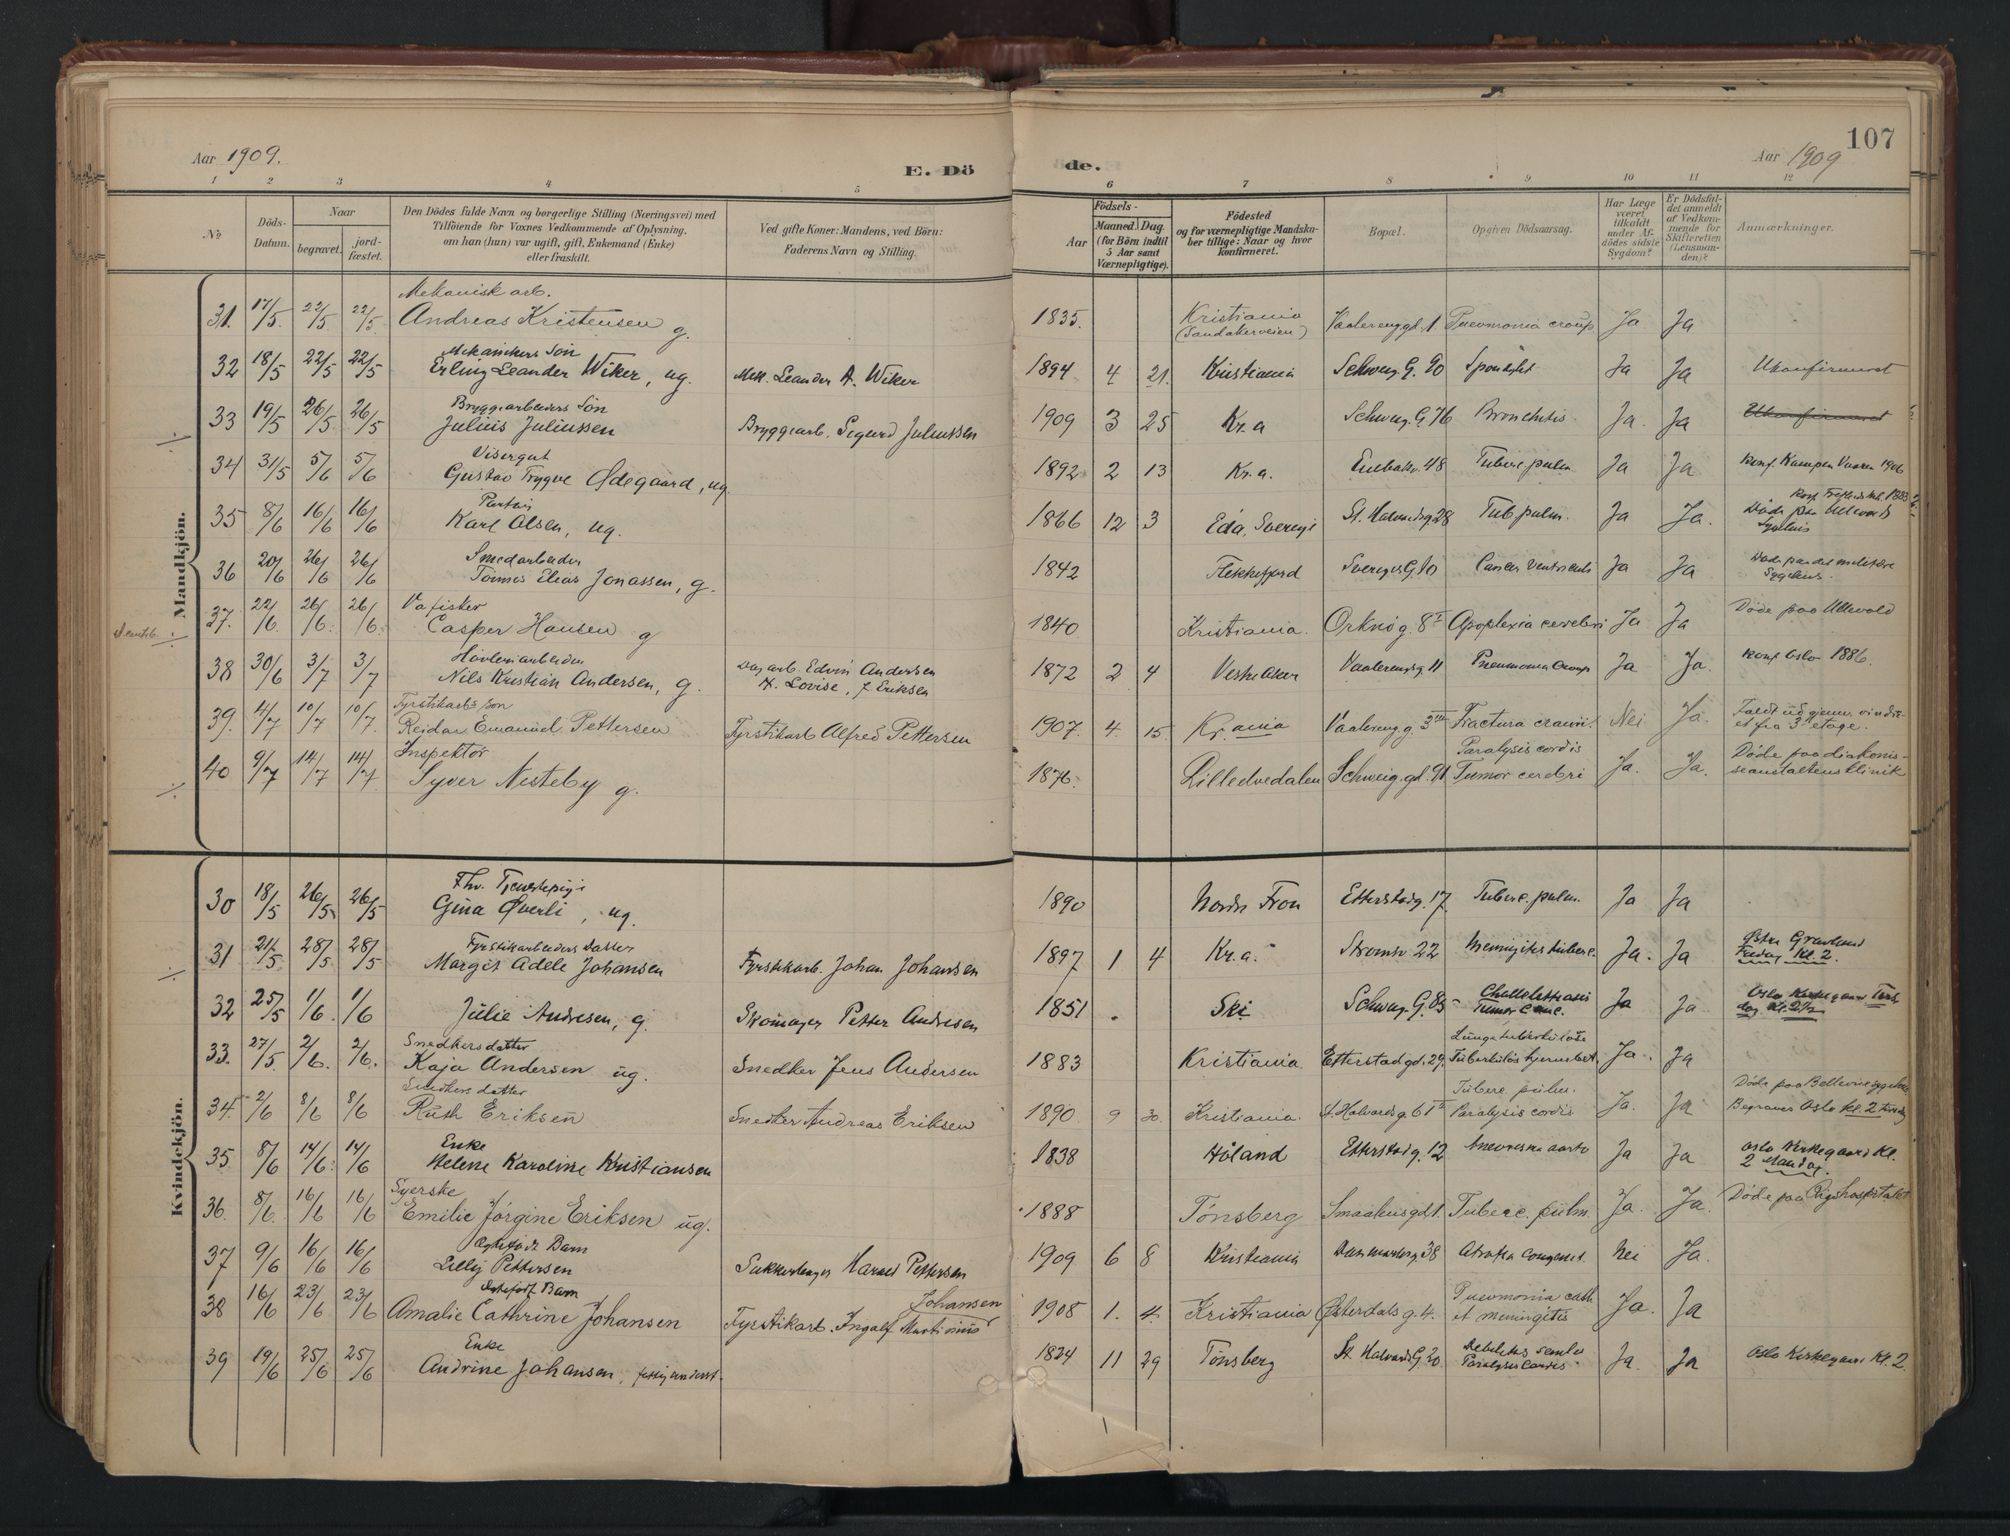 107
Aar 1909.
E. Dö
de.
Aar 1909
1 2 3 4 5 6 7 8 9 10 11 12
No
Döds-Datum.
Naar
begravet.
jord-fæstet.
Den Dödes fulde Navn og borgerlige Stilling (Næringsvei) med
Tilföiende for Voxnes Vedkommende af Oplysning,
om han (hun) var ugift, gift, Enkemand (Enke)
eller fraskilt.
Ved gifte Koner: Mandens, ved Börn:
Faderens Navn og Stilling.
Födsels-
Aar
Maaned. Dag.
(for Börn indtil
5 Aar samt
Værnepligtige).
Födested
og for værnepligtige Mandska-
ber tillige: Naar og hvor
konfirmeret.
Bopæl.
Opgiven Dödsaarsag.
Har Læge
været
tilkaldt
under Af-
dödes sidste
Sygdom?
Er Dödsfal-
det anmeldt
af Vedkom-
mende for
Skifteretten
(Lensman-
den)?
Anmærkninger.
Mandkjön.
Mekanisk arb.
31. 17/5. 22/5 22/5 Andreas Kristensen g. 1835. Kristiania Vaalerenggd. 1 Pneumonia croup. Ja Ja
(Sandakerveien)
Mekanikers Søn
32 18/5 22/5 22/5 Erling Leander Wiker, ug. Mek. Leander A. Wiker 1894 4 21. Kristiania Schweig. G. 90 Ja Ja Ukonfirmeret
Bryggearbeiders Søn
33 19/5 26/5 26/5 Julius Juliussen Bryggearb. Sigurd Juliussen 1909 3 25 Kr.a Schweig. G. 76 Bronchitis. Ja. Ja Ukonfirmeret
Visergut
34 31/5 5/6 5/6 Gustav Trygve Ødegaard, ug. 1892 2 13 Kr.a. 48 Tuberc. pulm. Ja Ja Konf. Kampen Vaaren 1906
35 8/6 16/6 16/6 Karl Olsen, ug. 1866 12 3 Eda, Sverige St. Halvardsg. 28 Tub. pulm. Ja Ja.
Smedarbeider
36 20/6 26/6 26/6 Tønnes Elias Jonassen, g. 1842 Flekkefjord Sverigesg. 10 Cancer ventriculi Ja Ja Døde paa det militære
Sygehus.
37. 22/6. 26/6. 26/6. Casper Hansen g 1840 Kristiania. Orknøg. 8 I Apoplexia cerebri Ja Ja Døde paa Ullevold
Høvleriarbeider
38 30/6 3/7 3/7 Nils Kristian Andersen, g. Dagarb. Edvin Andersen 1872 2 4 Vestre Aker Vaalerengg. 11 Pneumonia Croup. Ja Ja. Konf. Oslo 1886.
H. Lovise, f. Eriksen
Fyrstikarb's søn
39. 4/7 10/7 10/7. Reidar Emanuel Pettersen Fyrstikarb. Alfred Pettersen 1907. 4. 15. Kr.ania Vaalerengg. 3 III Fractura cranii. Nei Ja. Faldt ud gjenn. vindu-
et fra 3die etage.
Inspektør Paralysis cordis
40 9/7 14/7 14/7 Syver Nesteby g. 1876. Lilledvedalen Schweig. gd. 91 Tumor cerebri Ja. Ja. Døde paa diakonis-
seanstaltens klinik
Kvindekjön.
Fhv. Tjenestepige
30 18/5 26/5. 26/5 Gina Øverli, ug. 1890 Nordre Fron Etterstadg. 17. Tuberc. pulm. Ja Ja
Fyrstikarbeiders Datter
31 21/5 28/5 28/5 Margit Adele Johansen Fyrstikarb. Johan Johansen 1897 1 4 Kr.a. Strømsv 22 Meningitis tuberc. Ja. Ja. Østre Gravlund
Fredag Kl. 2.
32 25/5 1/6. 1/6 Julie Andresen, g. Skomager Petter Andresen 1851 Ski Schweig. G. 85 Ja Ja Oslo Kirkegaard Tirs
dag Kl. 2½
Snedkersdatter Lungetuberkulose
33. 27/5. 2/6. 2/6. Kaja Andersen ug. Snedker Jens Andersen 1883 Kristiania Etterstadgd. 29. Ja. Ja
Snedkers datter Tuberc. pulm. Døde paa Bellevue sygehus
34 2/6 8/6 8/6 Ruth Eriksen Snedker Andreas Eriksen 1890. 9 30. Kristiania. St. Halvardsg. 61 II Paralysis cordis Ja. Ja Begraves Oslo kl. 2 tirsdag
Enke
35 8/6 14/6. 14/6 Helene Karoline Kristiansen 1838 Høland Etterstadg. 12 Aneurisma aorta Ja Ja Oslo Kirkegaard Kl.
2 Mandag.
Syerske
36. 8/6. 16/6 16/6 Emilie Jørgine Eriksen ug. 1888 Tønsberg Smaahusgd. 1. Tuberc. pulm. Ja. Ja. Døde paa Rigshospitalet
Ægtefødt Barn
37 9/6 16/6 16/6 Lilly Pettersen Harald Pettersen 1909 6 8 Kristiania Danmarksg. 38 Nei Ja.
Ægtefødt Barn Johansen Pneumonia cath.
38 16/6 23/6 23/6 Amalie Cathrine Johansen Fyrstikarb. Ingolf Martinius 1908 1. 4. Kristiania Østerdalsg. 4. et meningitis Ja. Ja
Enke
39 19/6 25/6 25/6 Andrine Johansen, fattigunderst. 1824 11 29 Tønsberg St. HalvardsG. 20 Debilitas senilis Ja. Ja Oslo Kirkegaard Kl. 2
Paralysis cordis